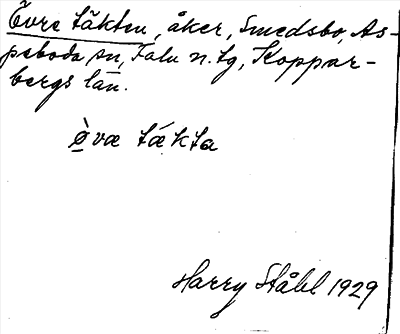 Övre täkten, åker, Smedsbo, As-
peboda sn, Falu n. tg, Koppar-
bergs län.
ø̀væ tǽkta
Harry Ståhl 1929